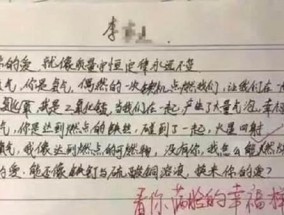 李
的爱 就像质量守恒定律永远不变
气,你是氧气,偶然的一次相机点燃我们,让我们在一
氧化氢,我是二氧化锰,当我们在一起,产生了大量气泡,幸福
气,你是达到燃点的铁丝,碰到了一起,火星四射
氧气,我像达到燃点的可燃物,没有你,我怎么能燃
的爱,能否像铁钉与硫酸铜溶液,换来你的爱?
看你满脸的幸福样